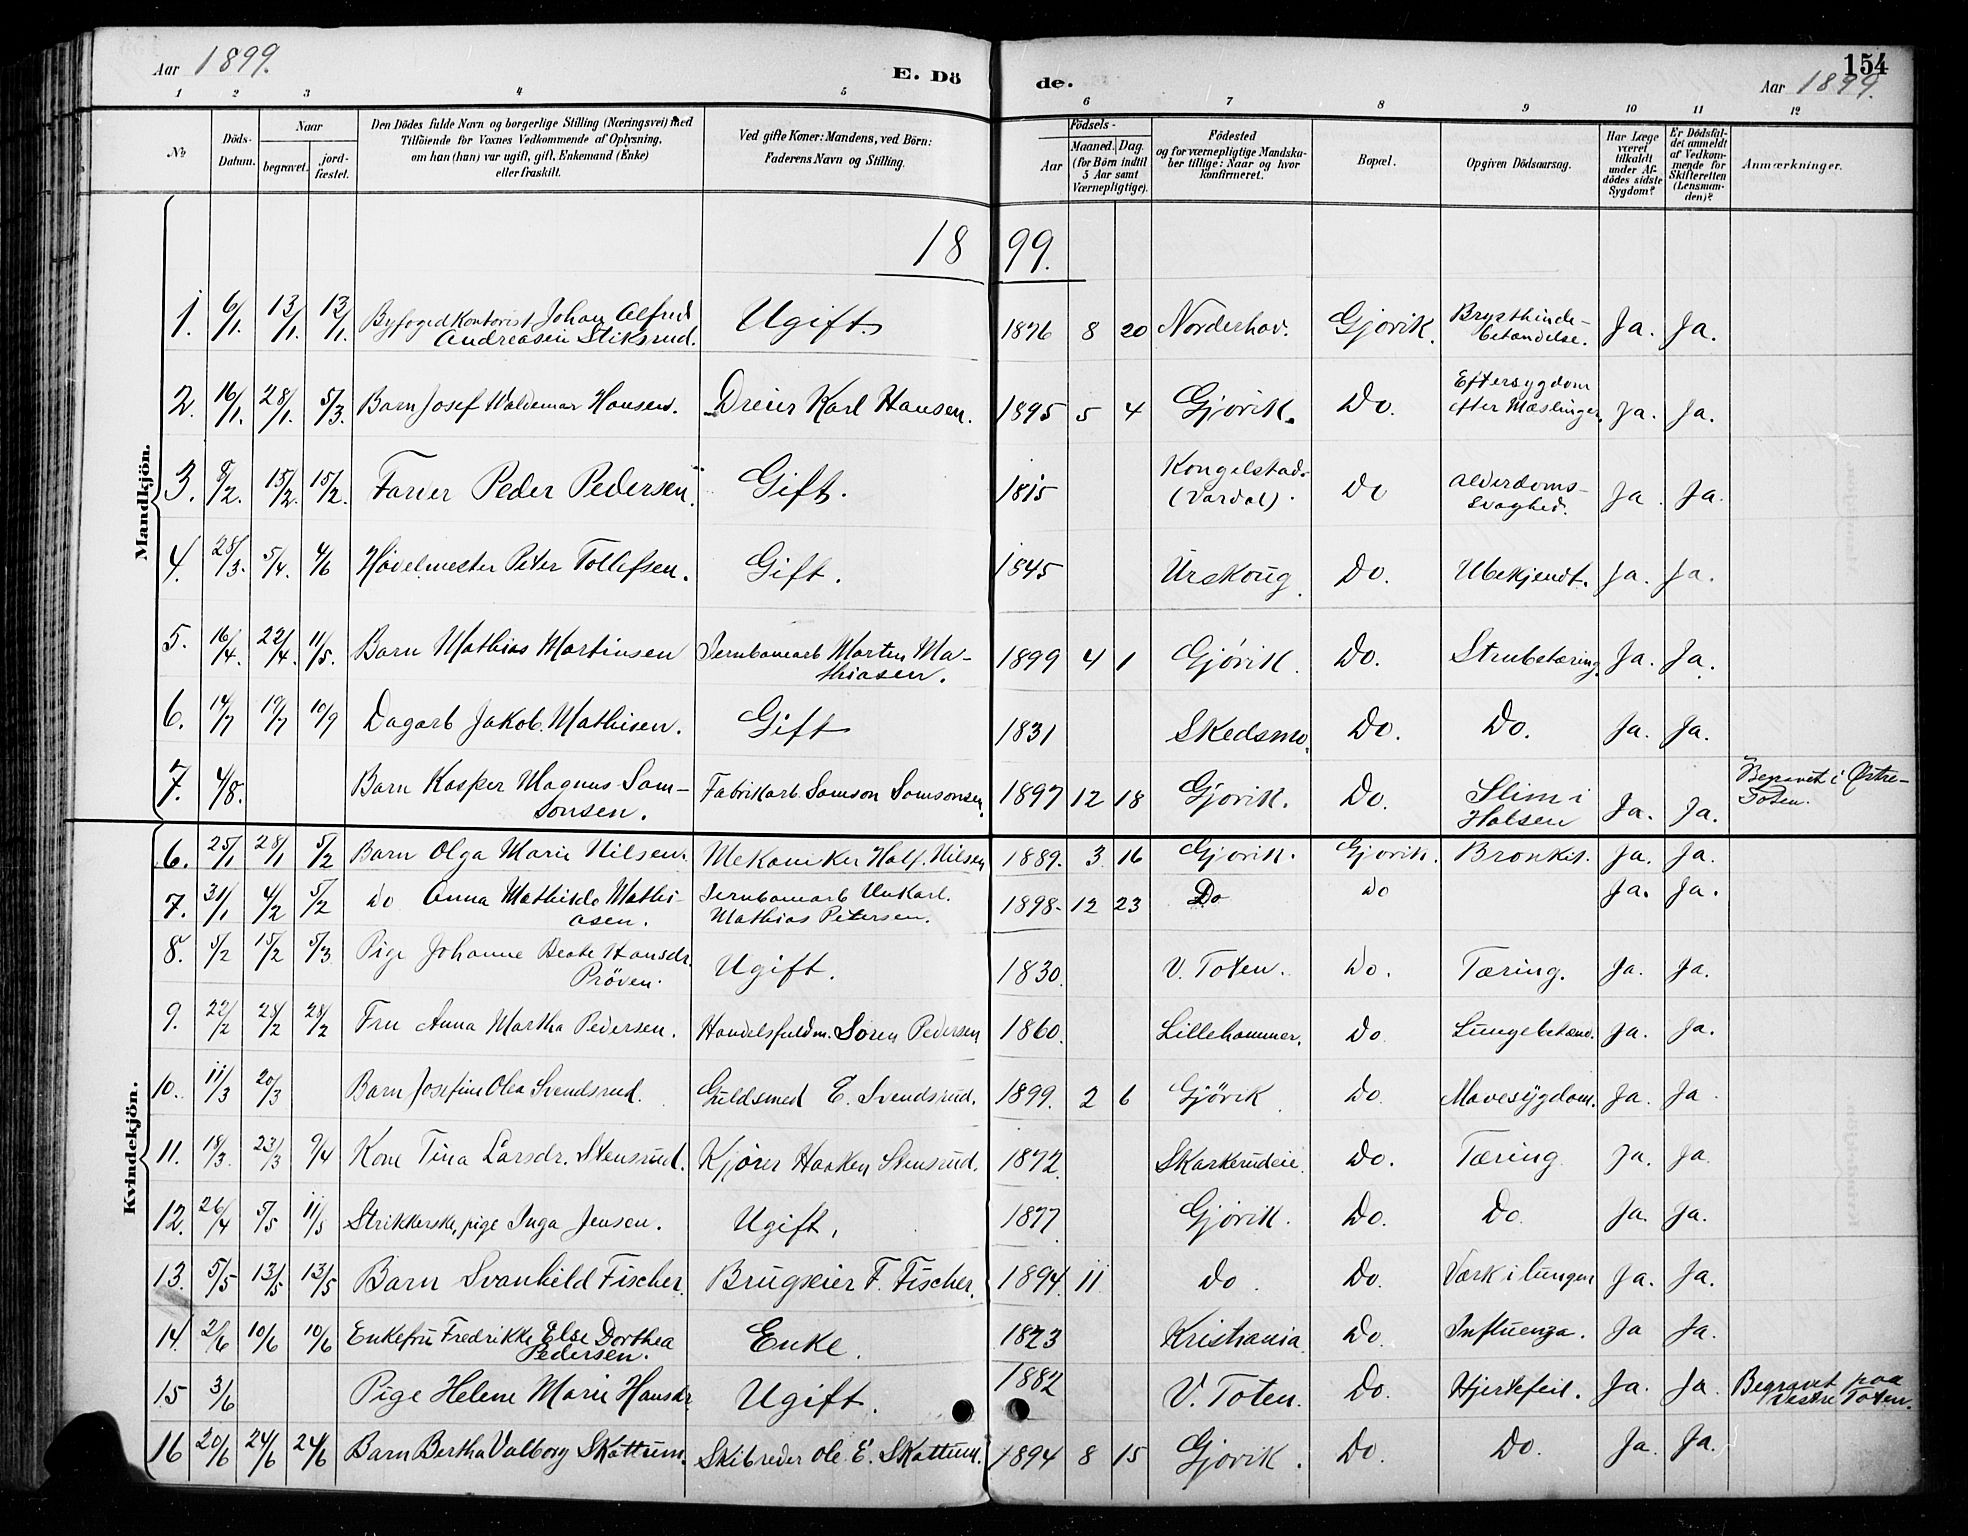 Aar 1899. E. Döde. 154
Aar 1899.
1 2 3 4 5 6 7 8 9 10 11 12
No
Döds-Datum.
Naar
begravet.
jord-fæstet.
Den Dödes fulde Navn og borgerlige Stilling (Næringsvei) med
Tilföiende for Voxnes Vedkommende af Oplysning,
om han (hun) var ugift, gift, Enkemand (Enke)
eller fraskilt.
Ved gifte Koner: Mandens, ved Börn:
Faderens Navn og Stilling.
Födsels-
Aar
Maaned. Dag.
(for Börn indtil
5 Aar samt
Værnepligtige).
Födested
og for værnepligtige Mandska-
ber tillige: Naar og hvor
konfirmeret.
Bopæl.
Opgiven Dödsaarsag.
Har Læge
været
tilkaldt
under Af-
dödes sidste
Sygdom?
Er Dödsfal-
det anmeldt
af Vedkom-
mende for
Skifteretten
(Lensman-
den)?
Anmærkninger.
1899.
Mandkjön.
1. 6/1. 13/1. 13/1. Byfogedkontorist Johan Alfred Andreasen Stiksrud. Ugift 1876 8 20 Norderhov. Gjøvik. Brysthinde-betændelse. Ja. Ja.
2. 16/1. 28/1. 5/3. Barn Josef Waldemar Hansen. Dreier Karl Hansen. 1895 5 4 Gjøvik. Do. Eftersygdom efter Mæslinger. Ja. Ja.
3. 8/2. 15/2. 15/2. Farver Peder Pedersen. Gift. 1815 Kongelstad. (Vardal). Do Alderdoms-svaghed. Ja. Ja.
4. 28/3. 5/4. 4/6 Høvelmester Peter Tollefsen. Gift. 1845 Urskoug. Do. Ubekjendt. Ja. Ja.
5. 16/4. 22/4. 11/5. Barn Mathias Martinsen Jernbanearb Martin Mathiasen. 1899 4 1 Gjøvik. Do. Strubetæring. Ja. Ja.
6. 14/7 19/7 10/9 Dagarb Jakob Mathisen. Gift 1831 Skedsmo. Do. Do. Ja. Ja.
7. 4/8. Barn Kasper Magnus Samsonsen. Fabrikarb. Samson Samsonsen. 1897 12 18 Gjøvik. Do. Slim i Halsen Ja. Ja. Begravet i Østre-Toten.
Kvindekjön.
6. 25/1 28/1 5/2 Barn Olga Marie Nilsen. Mekaniker Half. Nilsen 1889. 3 16 Gjøvik. Gjøvik. Bronkit. Ja. Ja.
7. 31/1 4/2 5/2 Do Anna Mathilde Mathiasen. Jernbanearb Mathias Petersen. 1898. 12 23 Do Do Ja. Ja.
8. 5/2 15/2 5/3 Pige Johanne Beate Hansdr. Prøven. Ugift. 1830. V. Toten. Do. Tæring. Ja. Ja.
9. 22/2 28/2 28/2 Fru Anna Martha Pedersen. Handelsfuldm. Søren Pedersen 1860. Lillehammer. Do Lungebetænd. Ja. Ja.
10. 11/3 20/3 Barn Josefine Olea Svendsrud. Guldsmed E. Svendsrud. 1899. 2 6 Gjövik Do Mavesygdom. Ja. Ja
11. 18/3. 23/3 9/4 Kone Tina Larsdr. Stensrud. Kjører Haaken Stensrud. 1872. Skarkerudeie Do. Tæring Ja. Ja.
12. 26/4 5/5 11/5 Strikkerske, pige Inga Jensen. Ugift. 1877 Gjøvik. Do. Do. Ja. Ja.
13. 5/5 13/5 13/5 Barn Svanhild Fischer. Brugseier F. Fischer. 1894. 11 Do Do. Værk i lungen Ja. Ja.
14. 2/6 10/6 10/6 Enkefru Fredrikke Else Dorthea Pedersen. Enke. 1823 Kristiania Do. Influenza. Ja Ja.
15 3/6 Pige Helene Marie Hansdr Ugift. 1882 V. Toten. Do. Hjertefeil. Ja. Ja. Begravet paa Vestre Toten.
16 20/6 24/6 24/6 Barn Bertha Valborg Skattum. Skibreder Ole E. Skattum. 1894 8 15 Gjøvik. Do. Do. Ja. Ja.